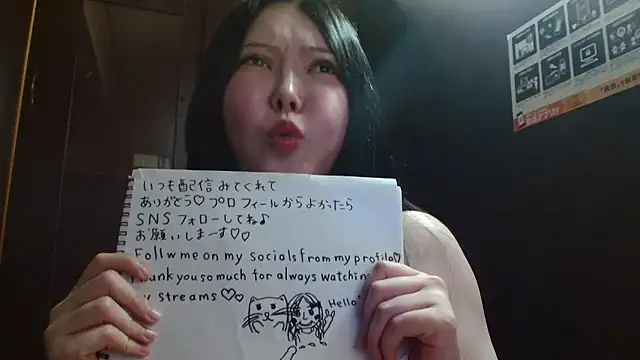 いつも配信みてくれて
ありがとう♡プロフィールからよかったら
SNSフォローしてね♪
お願いしまーす♡♡
Follw me on my socials from my profile♡
ank you so much for always watchin
streams♡♡
Hello